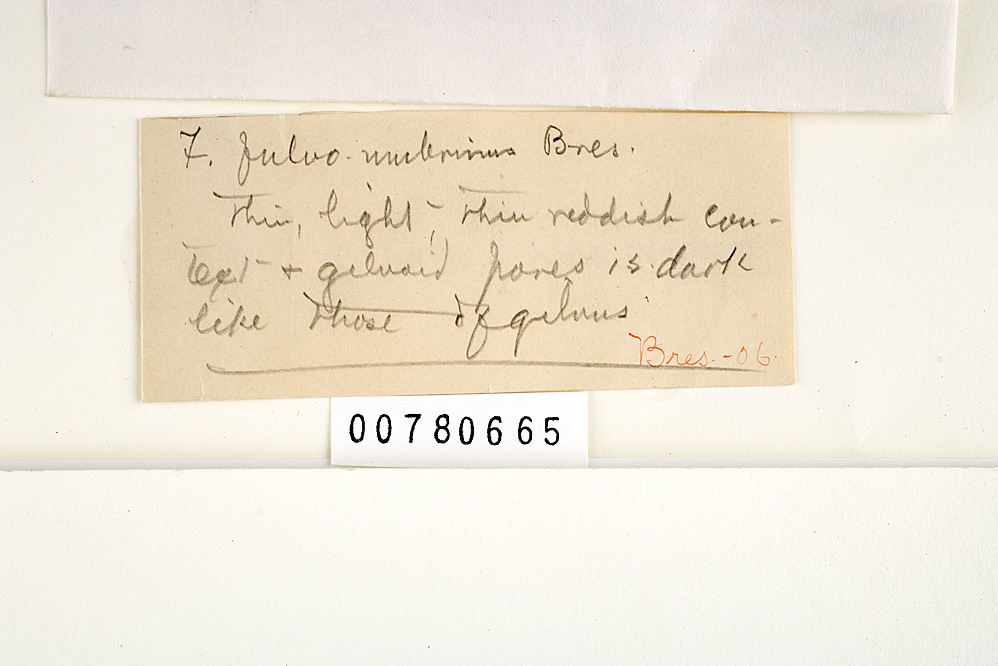 F. fulvo-umbrinus Bres.
Thin, light, thin reddish con-
text + gilvoid pores is dark
like those of gilvus
Bres. - 06.
00780665